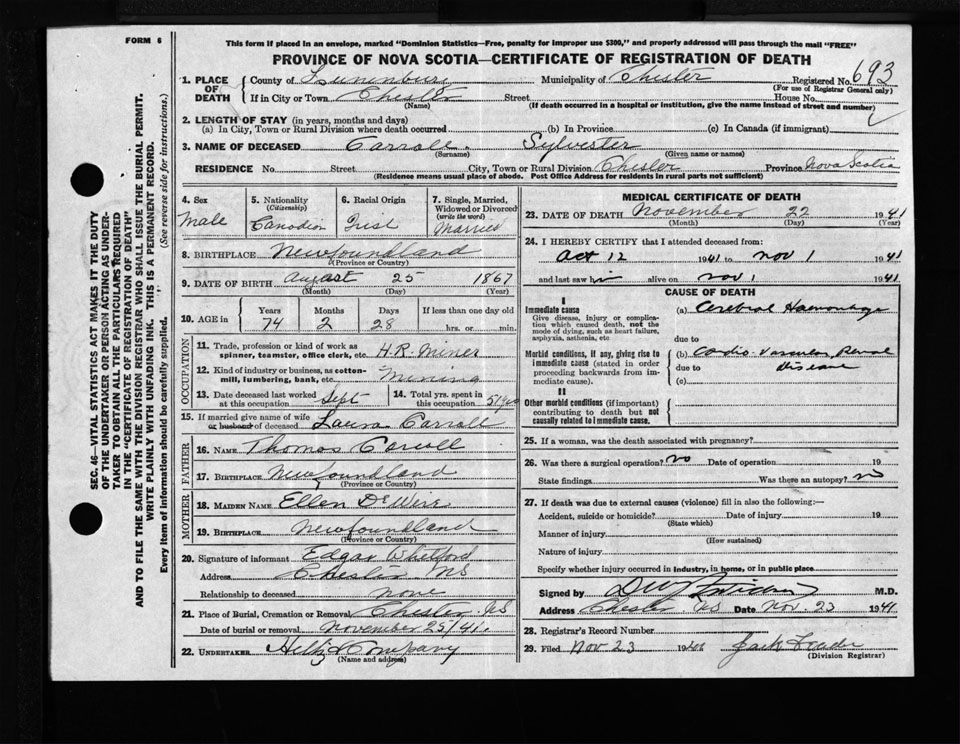 FORM 6
This form if placed in an envelope, marked "Dominion Statistics—Free, penalty for improper use $300," and properly addressed will pass through the mail "FREE"
PROVINCE OF NOVA SCOTIA—CERTIFICATE OF REGISTRATION OF DEATH
SEC. 46—VITAL STATISTICS ACT MAKES IT THE DUTY
OF THE UNDERTAKER OR PERSON ACTING AS UNDER-
TAKER TO OBTAIN ALL THE PARTICULARS REQUIRED
IN THE "CERTIFICATE OF REGISTRATION OF DEATH"
AND TO FILE THE SAME WITH THE DIVISION REGISTRAR WHO SHALL ISSUE THE BURIAL PERMIT.
WRITE PLAINLY WITH UNFADING INK. THIS IS A PERMANENT RECORD.
Every item of information should be carefully supplied. (See reverse side for instructions.)
1. PLACE OF DEATH County of Lunenburg Municipality of Chester Registered No. 693
(For use of Registrar General only)
If in City or Town Chester Street House No.
(Name) (If death occurred in a hospital or institution, give the name instead of street and number)
2. LENGTH OF STAY (in years, months and days)
(a) In City, Town or Rural Division where death occurred (b) In Province (c) In Canada (if immigrant)
3. NAME OF DECEASED Carroll Sylvester
(Surname) (Given name or names)
RESIDENCE No. Street City, Town or Rural Division Chester Province Nova Scotia
(Residence means usual place of abode. Post Office Address for residents in rural parts not sufficient)
4. Sex Male
5. Nationality (Citizenship) Canadian
6. Racial Origin Irish
7. Single, Married, Widowed or Divorced (write the word) Married
8. BIRTHPLACE Newfoundland
(Province or Country)
9. DATE OF BIRTH August 25 1867
(Month) (Day) (Year)
10. AGE in Years Months Days If less than one day old
74 2 28 hrs. or min.
OCCUPATION
11. Trade, profession or kind of work as spinner, teamster, office clerk, etc. H.R. Miner
12. Kind of industry or business, as cotton-mill, lumbering, bank, etc. Mining
13. Date deceased last worked at this occupation Sept
14. Total yrs. spent in this occupation 51 yrs
15. If married give name of wife or husband of deceased Laura Carroll
FATHER
16. NAME Thomas Carroll
17. BIRTHPLACE Newfoundland
(Province or Country)
MOTHER
18. MAIDEN NAME Ellen
19. BIRTHPLACE Newfoundland
(Province or Country)
20. Signature of informant Edgar Whitford
Address Chester NS
Relationship to deceased none
21. Place of Burial, Cremation or Removal Chester NS
Date of burial or removal November 25/41.
22. UNDERTAKER & Company
(Name and address)
MEDICAL CERTIFICATE OF DEATH
23. DATE OF DEATH November 22 1941
(Month) (Day) (Year)
24. I HEREBY CERTIFY that I attended deceased from:
Oct 12 1941 to Nov 1 1941
and last saw him alive on Nov 1 1941
CAUSE OF DEATH
I
Immediate cause (a) Cerebral Haemorrhage
Give disease, injury or complication which caused death, not the mode of dying, such as heart failure, asphyxia, asthenia, etc
due to
Morbid conditions, if any, giving rise to immediate cause (stated in order proceeding backwards from immediate cause). (b) Cardio-Vascular Renal
due to Disease
(c)
II
Other morbid conditions (if important) contributing to death but not causally related to immediate cause.
25. If a woman, was the death associated with pregnancy?
26. Was there a surgical operation? no Date of operation 19
State findings Was there an autopsy? no
27. If death was due to external causes (violence) fill in also the following:—
Accident, suicide or homicide? Date of injury 19
(State which)
Manner of injury
(How sustained)
Nature of injury
Specify whether injury occurred in industry, in home, or in public place
Signed by M.D.
Address Chester NS Date Nov. 23 1941
28. Registrar's Record Number
29. Filed Nov 23 19 Jack
(Division Registrar)